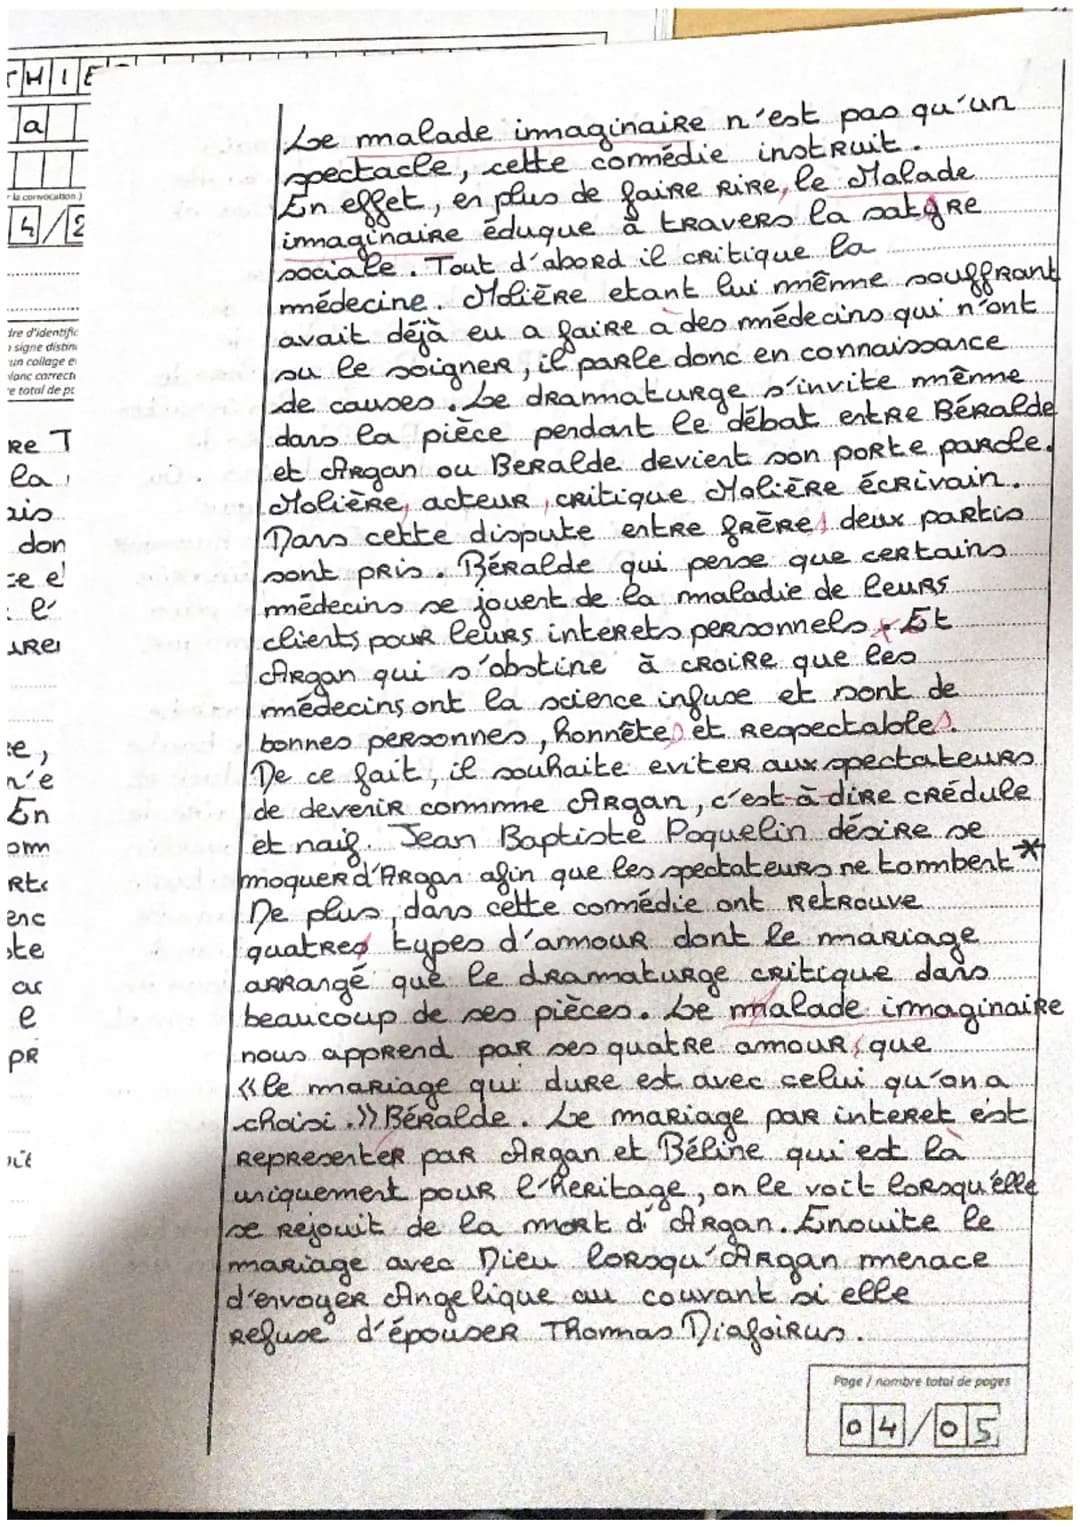 THIE
a
r la convocation.)
4/2
dre d'identific
signe distin
un collage e
lanc correct
e total de pa
RE T
la
ais
don
ce e
l'
URE
ce,
n'e
En
om
Rte
enc
ste
ar
e
PR
oit
Le malade imaginaire n'est pas qu'un
spectacle, cette comédie instruit.
En effet, en plus de faire rire, le Malade
imaginaire éduque à travers la satyre
sociale. Tout d'abord il critique la
médecine. Molière etant lui même souffrant
avait déjà eu a faire à des médecins qui n'ont
su le soigner, il parle donc en connaissance
de causes. Le dramaturge s'invite même
dans la pièce pendant le débat entre Béralde
et Argan ou Beralde devient son porte parole.
Molière, acteur, critique Molière écrivain.
Dans cette dispute entre frère, deux partis
sont pris. Béralde qui pense que certains
médecins se jouent de la maladie de leurs
clients pour leurs interets personnels. Et
Argan qui s'obstine à croire que les
médecins ont la science infuse et sont de
bonnes personnes, honnêtes et respectables.
De ce fait, il souhaite eviter aux spectateurs
de devenir comme Argan, c'est à dire crédule
et naif. Jean Baptiste Poquelin désire se
moquer d'Argan afin que les spectateurs ne tombent *
De plus, dans cette comédie ont retrouve
quatres types d'amour dont le mariage
arrangé que le dramaturge critique dans
beaucoup de ses pièces. Le malade imaginaire
nous apprend par ses quatre amour, que
«le mariage qui dure est avec celui qu'on a
choisi.» Béralde. Le mariage par interet est
representer par Argan et Béline qui est là
uniquement pour l'heritage, on le voit lorsqu'elle
se rejouit de la mort d'Argan. Ensuite le
mariage avec Dieu lorsqu'Argan menace
d'envoyer Angelique au couvant si elle
refuse d'épouser Thomas Diafoirus.
Page / nombre total de pages
04/05